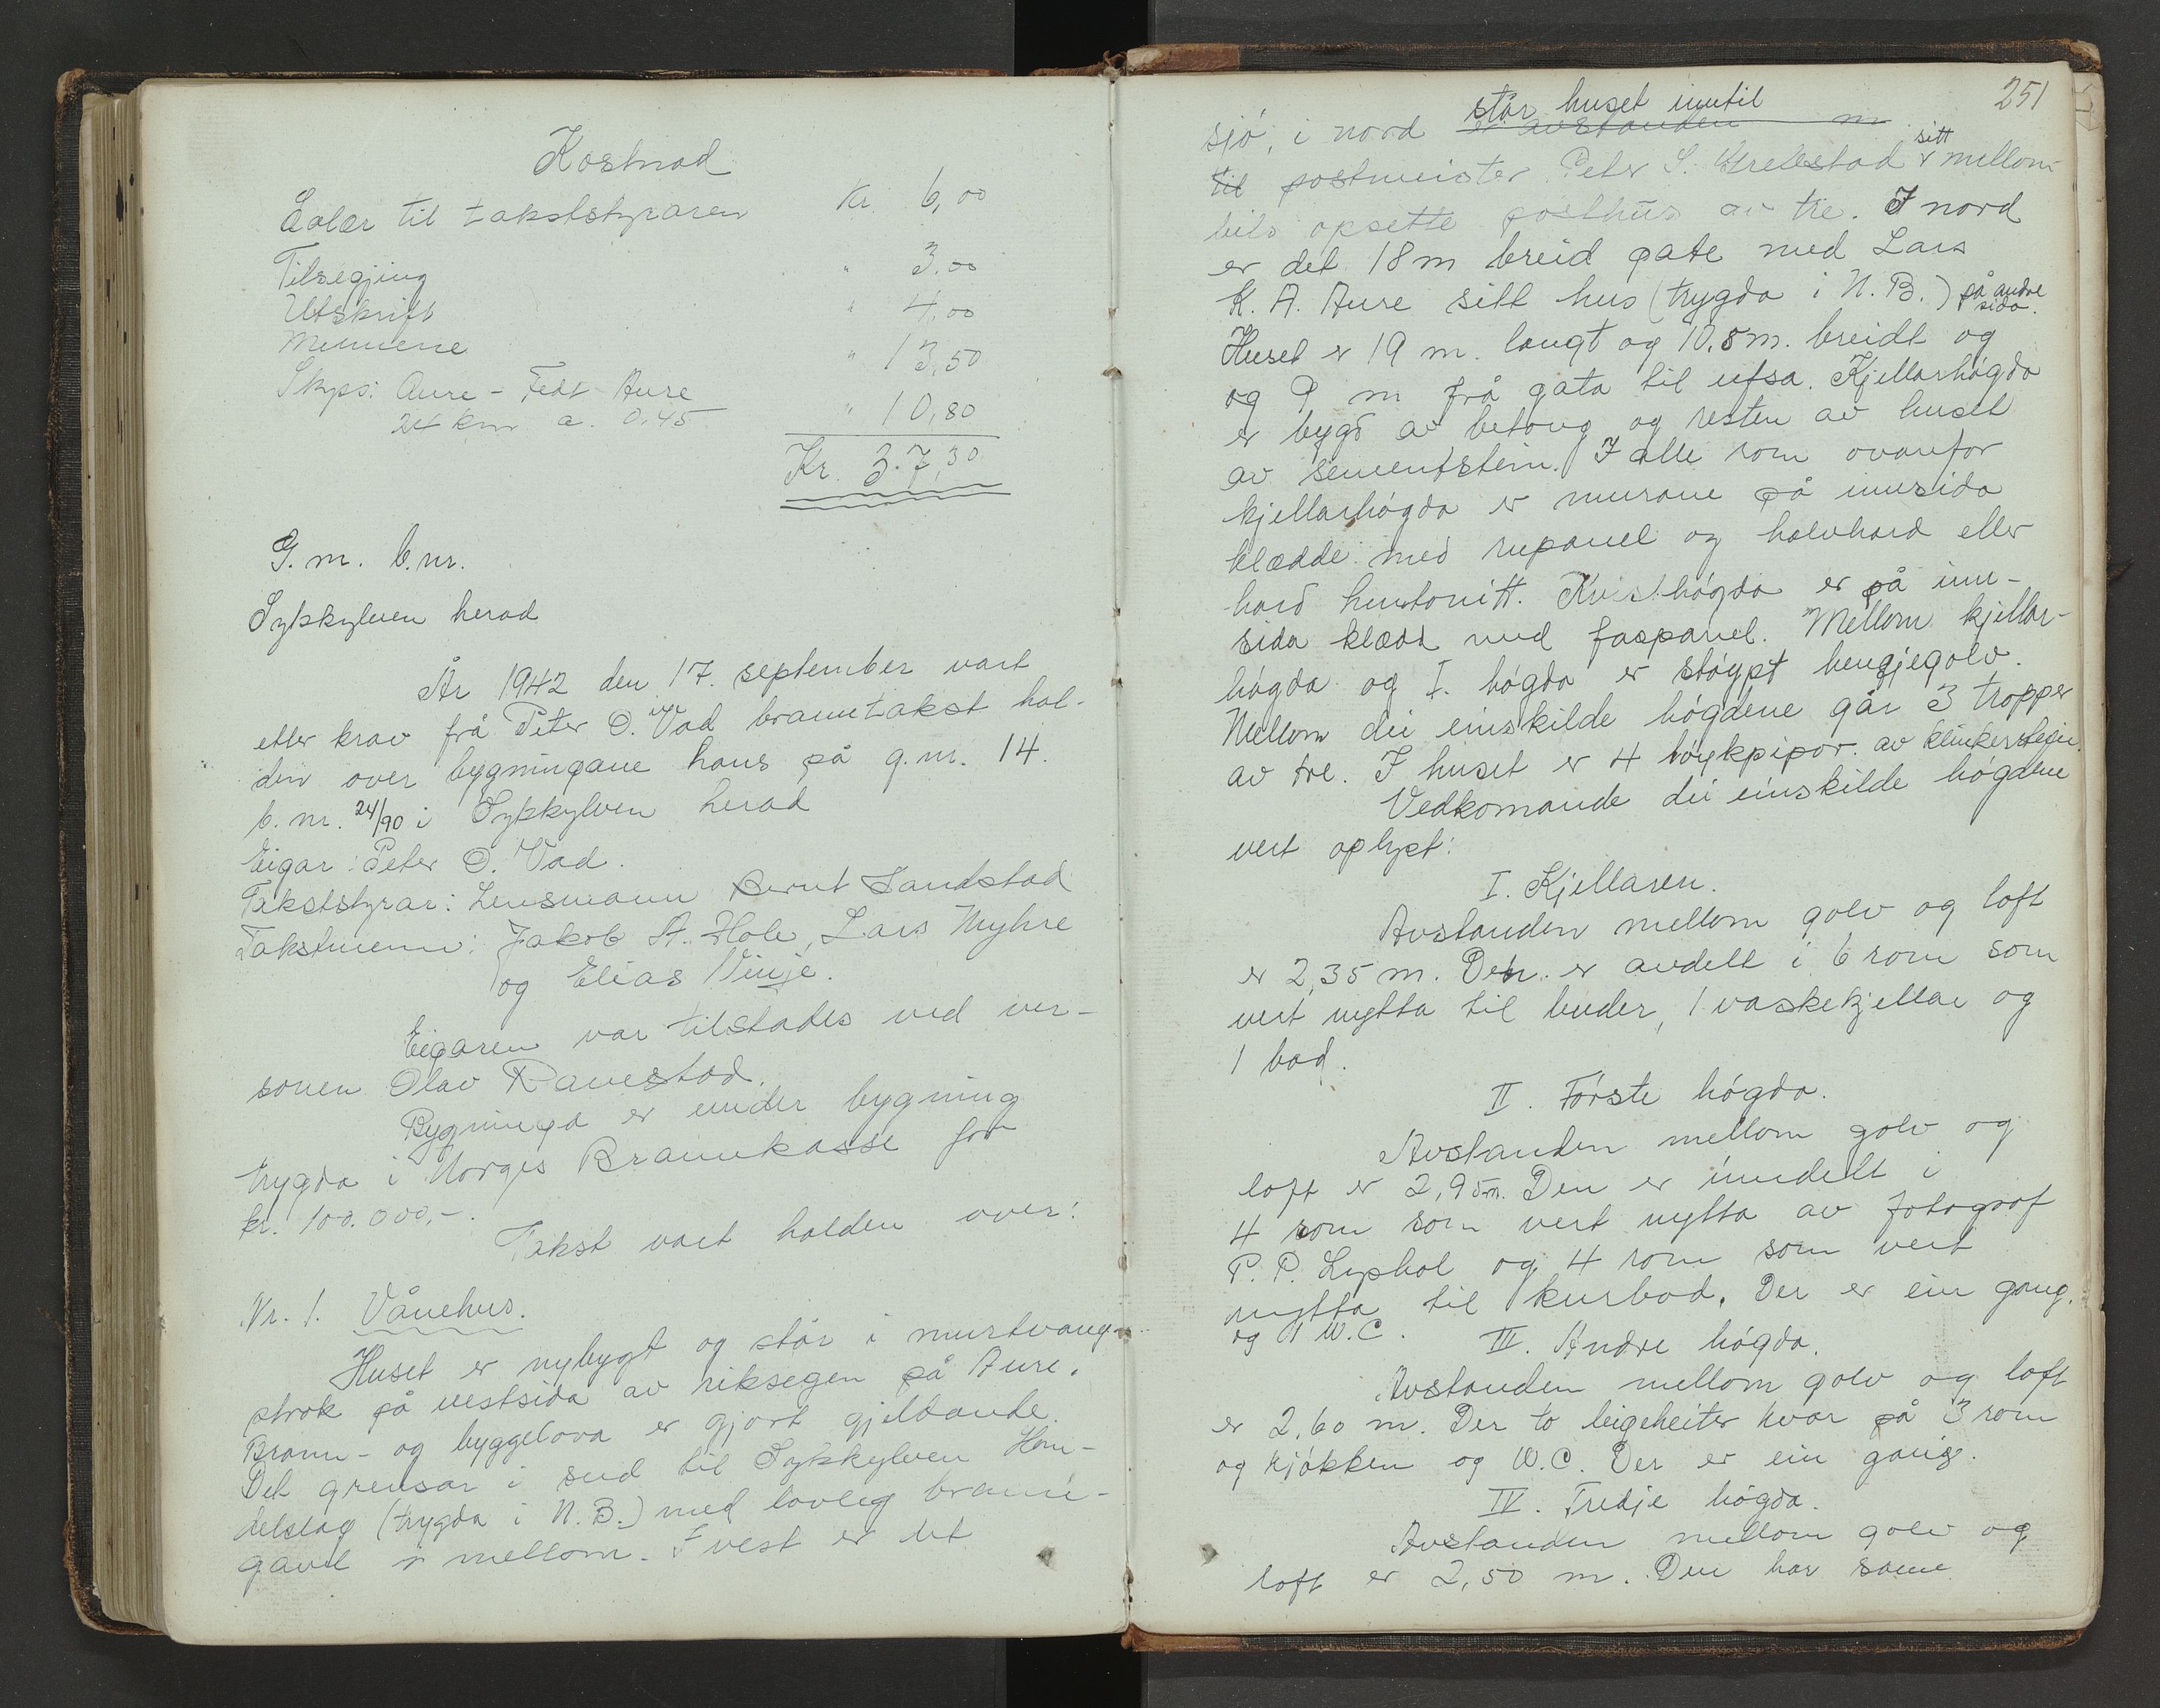 Kostnad
Salær til takststyraren Kr. 6,00
Tilsegjing " 3.00
Utskrift " 4,00
Mennene " 13,50
Skyss: Aure - Fedt Aure
24 km a. 0.45 " 10,80
Kr. 37,30
G.nr. b.nr.
Sykkylven herad
År 1942 den 17. september vart
etter krav frå Peter O. Vad branntakst hal-
den over bygningane hans på g.nr. 14.
b.nr. 24/90 i Sykkylven herad
Eigar: Peter O. Vad.
Takststyrar: Lensmann Bernt Sandstad
Takstmenn: Jakob A. Hole, Lars Myhre
og Elias Vinje.
Eigaren var tilstades ved ver-
sonen Olav Ramstad.
Bygninga er under bygning
trygda i Norges Brannkasse for
kr. 100.000,-.
Takst vart halden over:
Nr. 1. Vånehus.
Huset er nybygt og står i murtvang-
strok på vestsida av riksegen på Aure.
Brann- og byggelova er gjort gjeldande.
Det grensar i sud til Sykkylven Han-
delslag (trygda i N.B.) med lovleg brann-
gavl i mellom. I vest er det
251
står huset inntil
sjø, i nord er avstanden m
til postmeister Peter S. sitt mellom-
bils opsette posthus av tre. I nord
er det 18 m breid gate med Lars
K. A. Aure sitt hus (trygda i N.B.) på andre
sida.
Huset er 19 m. langt og 10,8 m. breidt og
og 9 m frå gata til ufsa. Kjellarhøgda
er bygd av betong og resten av huset
av sementstein. I alle rom ovanfor
kjellarhøgda er murane på innsida
klædde med rupanel og halvhard eller
hard huntonitt. Kvisthøgda er på inn-
sida klædd med faspanel. Mellom kjellar-
høgda og I. høgda er støypt hengjegolv.
Mellom dei einskilde høgdene går 3 tropper
av tre. I huset er 4 røykpipor av klinkerstein.
Vedkomande dei einskilde høgdene
vert oplyst:
I. Kjellaren.
Avstanden mellom golv og loft
er 2,35 m. Den er avdelt i 6 rom som
vert nytta til buder, 1 vaskekjellar og
1 bad.
II. Første høgda.
Avstanden mellom golv og
loft er 2,95 m. Den er inndelt i
4 rom som vert nytta av fotograf
P. P. Lyshol og 4 rom som vert
nytta til kurbad. Der er ein gang.
og 1 W.C.
III. Andre høgda.
Avstanden mellom golv og loft
er 2,60 m. Der to leigeheiter kvar på 3 rom
og kjøkken og W.C. Der er ein gang.
IV. Tredje høgda.
Avstanden mellom golv og
loft er 2,50 m. Den har same